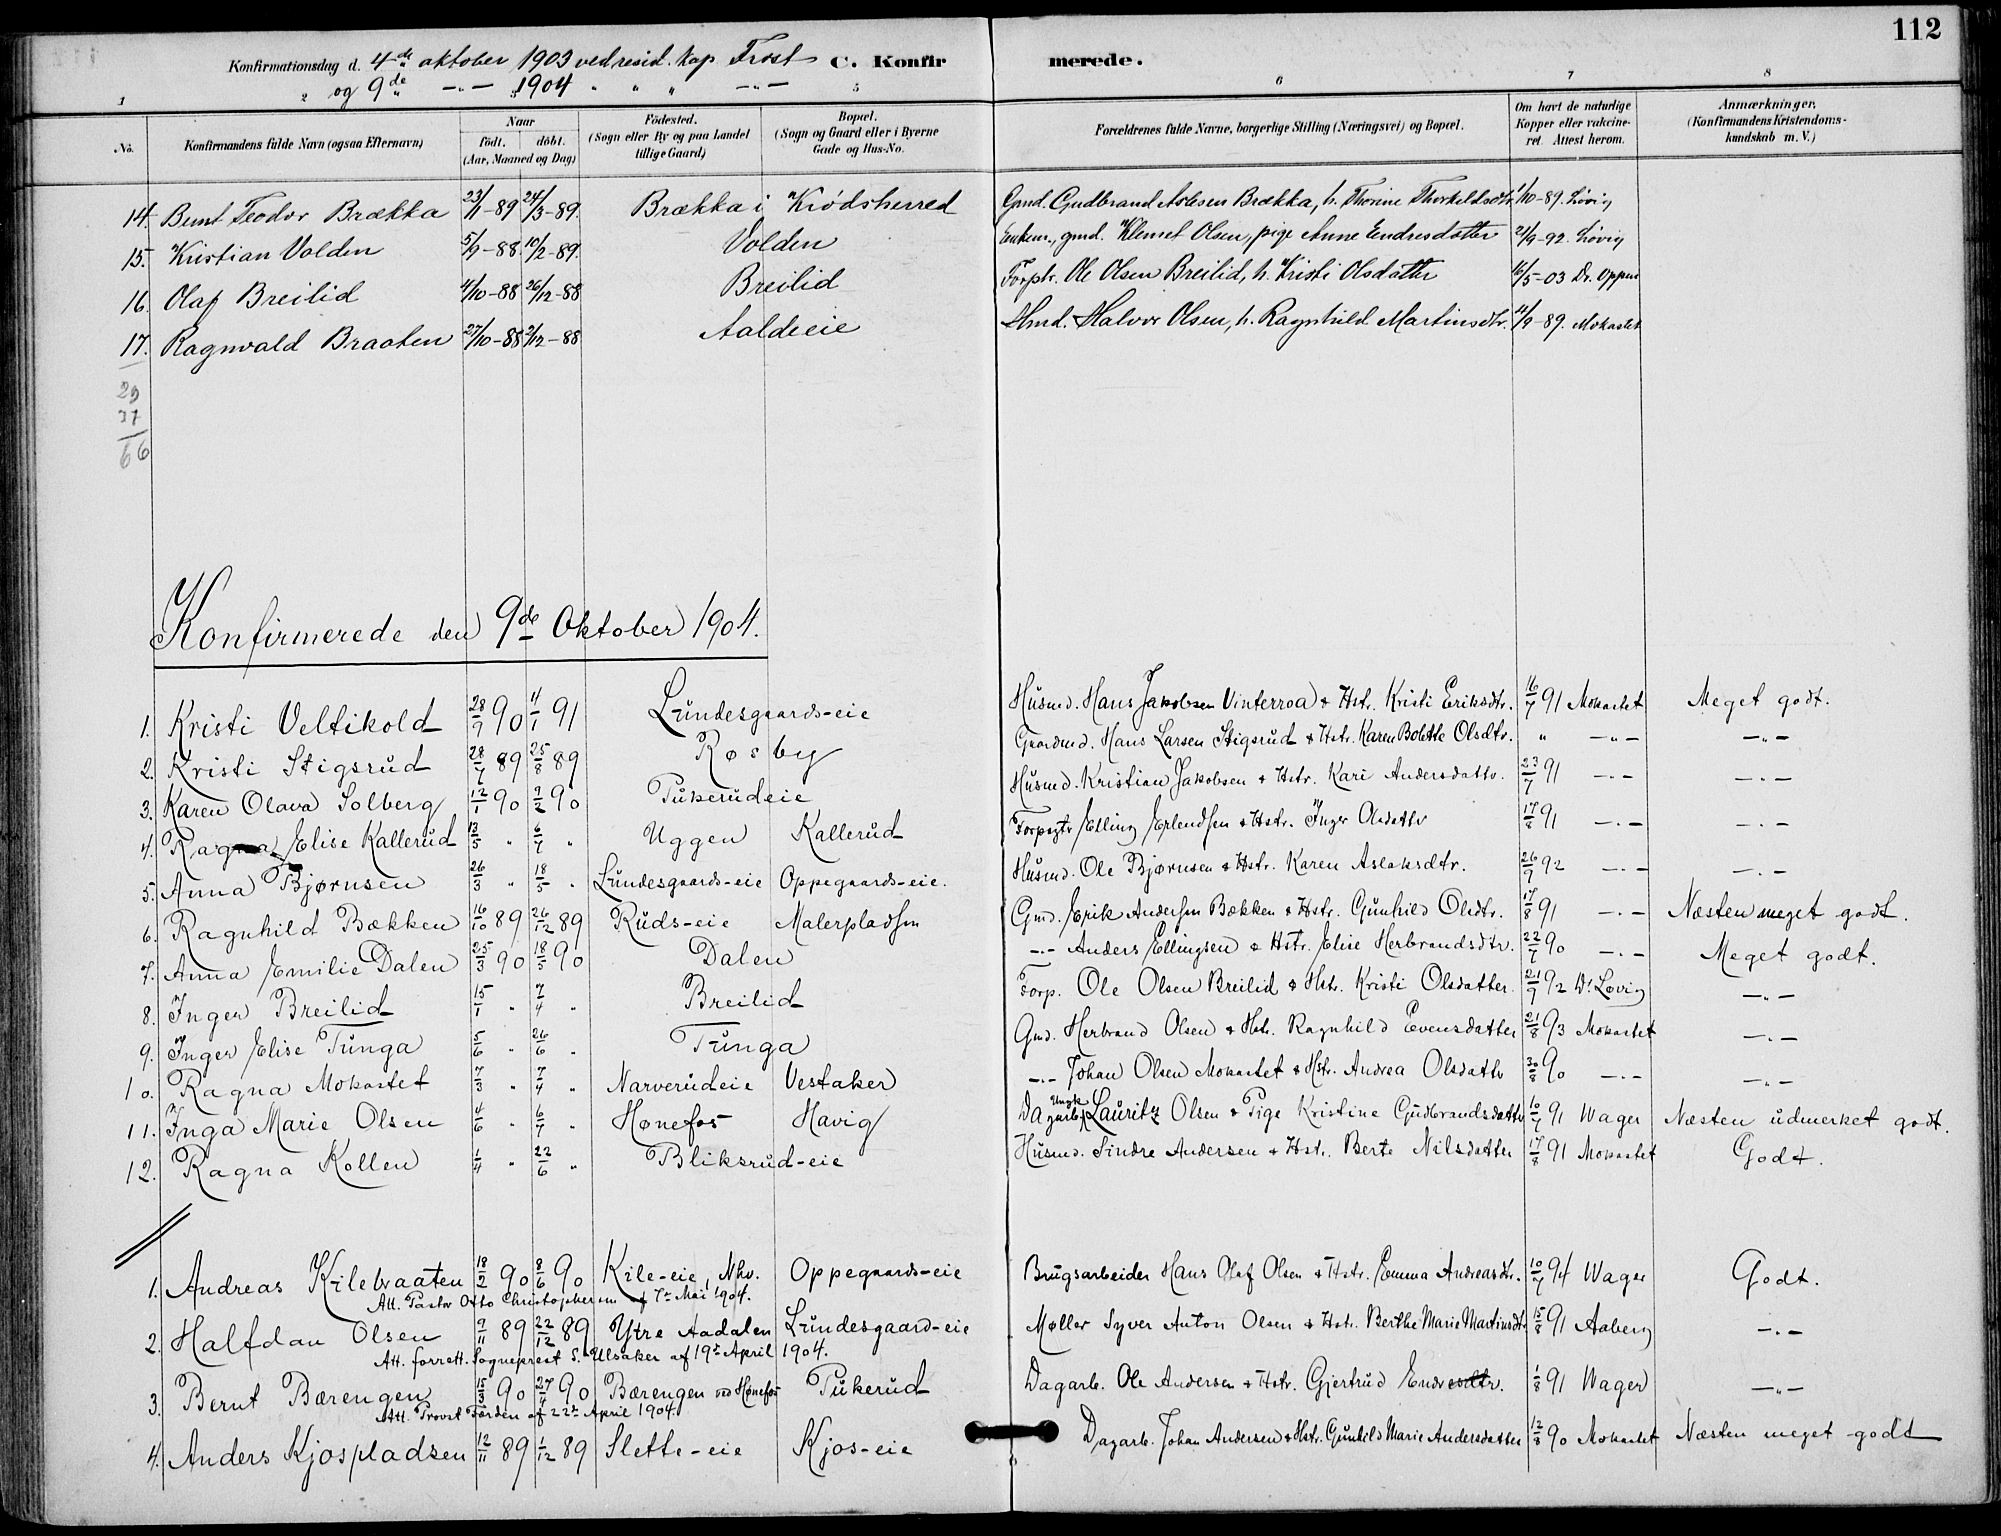 112
Konfirmationsdag d. 4de oktober 1903 ved resid. kap Frost C. Konfirmerede.
og 9de —"— 1904 " " " —"—
1 2 3 5 6 7 8
No. Konfirmandens fulde Navn (ogsaa Efternavn) Naar födt. döbt. (Aar, Maaned og Dag) Födested. (Sogn eller By og paa Landet tillige Gaard) Bopæl. (Sogn og Gaard eller i Byerne Gade og Hus-No. Forældrenes fulde Navne, borgerlige Stilling (Næringsvei) og Bopæl. Om havt de naturlige Kopper eller vakcineret. Attest herom. Anmærkninger. (Konfirmandens Kristendomskundskab m. V.)
14. Bernt Teodor Brækka 23/11-89 24/3-89. Brækka i Krödsherred Gmd. Gudbrand Aslesen Brækka, h. Thorine Thorkildsdtr. 1/10-89. Lövig
15. Kristian Volden 5/9-88. 10/2-89. Volden Enkem., gmd. Klemet Olsen, pige Anne Endresdatter 21/9-92. Lövig
16. Olaf Breilid 4/10-88 26/12-88 Breilid Forptr. Ole Olsen Breilid, h. Kristi Olsdatter 16/5-03 Dr. Oppen
17. Ragnvald Braaten 27/10-88 2/12-88 Aaldeeie Hmd. Halvor Olsen, h. Ragnhild Martinsdtr. 11/9-89. Mokastet
29
37
66
Konfirmerede den 9de Oktober 1904.
1. Kristi Veltikold 28/9 90 4/1 91 Lundesgaards-eie Husmd. Hans Jakobsen Vinterroa & Hstr. Kristi Eriksdtr. 16/7 91 Mokastet Meget godt.
2. Kristi Stigsrud 28/7 89 25/8 89 Røsby Gaardmd. Hans Larsen Stigsrud & Hstr. Karen Bolette Olsdtr. " —"— —"—
3. Karen Olava Solberg 12/1 90 9/2 90 Tukerudeie Husmd. Kristian Jakobsen & Hstr. Kari Andersdattr. 23/7 91 —"— —"—
4. Ragna Elise Kallerud 13/5 " 6/7 " Uggen Kallerud Forpagtr Elling Erlendsen & Hstr. Inger Olsdattr 17/8 91 —"— —"—
5. Anna Bjørnsen 26/3 " 18/5 " Lundesgaards-eie Oppegaards-eie. Husmd. Ole Bjørnsen & Hstr. Karen Aslaksdtr. 26/9 92 —"— —"—
6. Ragnhild Bækken 16/10 89 26/12 89 Ruds-eie Malerpladsen Gmd. Erik Andersen Bækken & Hstr. Gunhild Olsdtr. 17/8 91 —"— Næsten meget godt.
7. Anna Emilie Dalen 25/3 90 18/5 90 Dalen —"— Anders Ellingsen & Hstr. Elise Herbrandsdtr. 22/7 90 —"— Meget godt.
8. Inger Breilid 15/1 " 7/4 " Breilid Forp. Ole Olsen Breilid & Hstr. Kristi Olsdatter 21/9 92 Dr. Løvig —"—
9. Inger Elise Tunga 5/6 " 26/6 " Tunga Gmd. Herbrand Olsen & Hstr. Ragnhild Evensdatter 21/8 93 Mokastet —"—
10. Ragna Mokastet 7/3 " 7/4 " Narverudeie Vestaker —"— Johan Olsen Mokastet & Hstr. Andrea Olsdattr 30/8 90 —"— —"—
11. Inga Marie Olsen 4/6 " 6/7 " Hønefos Havig Dagarb. Ungk Lauritz Olsen & Pige Kristine Gudbrandsdattr 10/7 91 Wager Næsten udmerket godt.
12. Ragna Kollen 1/4 " 22/6 " Bliksrud-eie Husmd. Sindre Andersen & Hstr. Berte Nilsdatter 17/8 91 Mokastet Godt.
1. Andreas Kilebraaten 18/2 90 8/6 90 Kile-eie, Nhv. Oppegaards-eie Brugsarbeider Hans Olaf Olsen & Hstr. Emma Andreasdtr. 10/7 94 Wager Godt.
Att. Pastor Otto Christophersen af 7de Mai 1904.
2. Halfdan Olsen 9/11 89 22/12 89 Ytre Aadalen Lundesgaard-eie Møller Syver Anton Olsen & Hstr. Berthe Marie Martinsdtr 15/8 91 Aaberg —"—
Att. forrett. Sogneprest S. Ulsaker af 19de April 1904.
3. Bernt Bærengen 15/3 90 27/4 90 Bærengen ved Hønefos Tukerud Dagarb. Ole Andersen & Hstr. Gjertrud Endresdtr. 1/8 91 Wager —"—
Att. Provst Førden af 22de April 1904.
4. Anders Kjospladsen 12/11 89 1/12 89 Slette-eie Kjos-eie Dagarb. Johan Andersen & Hstr. Gunhild Marie Andersdatter 12/8 90 Mokastet Næsten meget godt